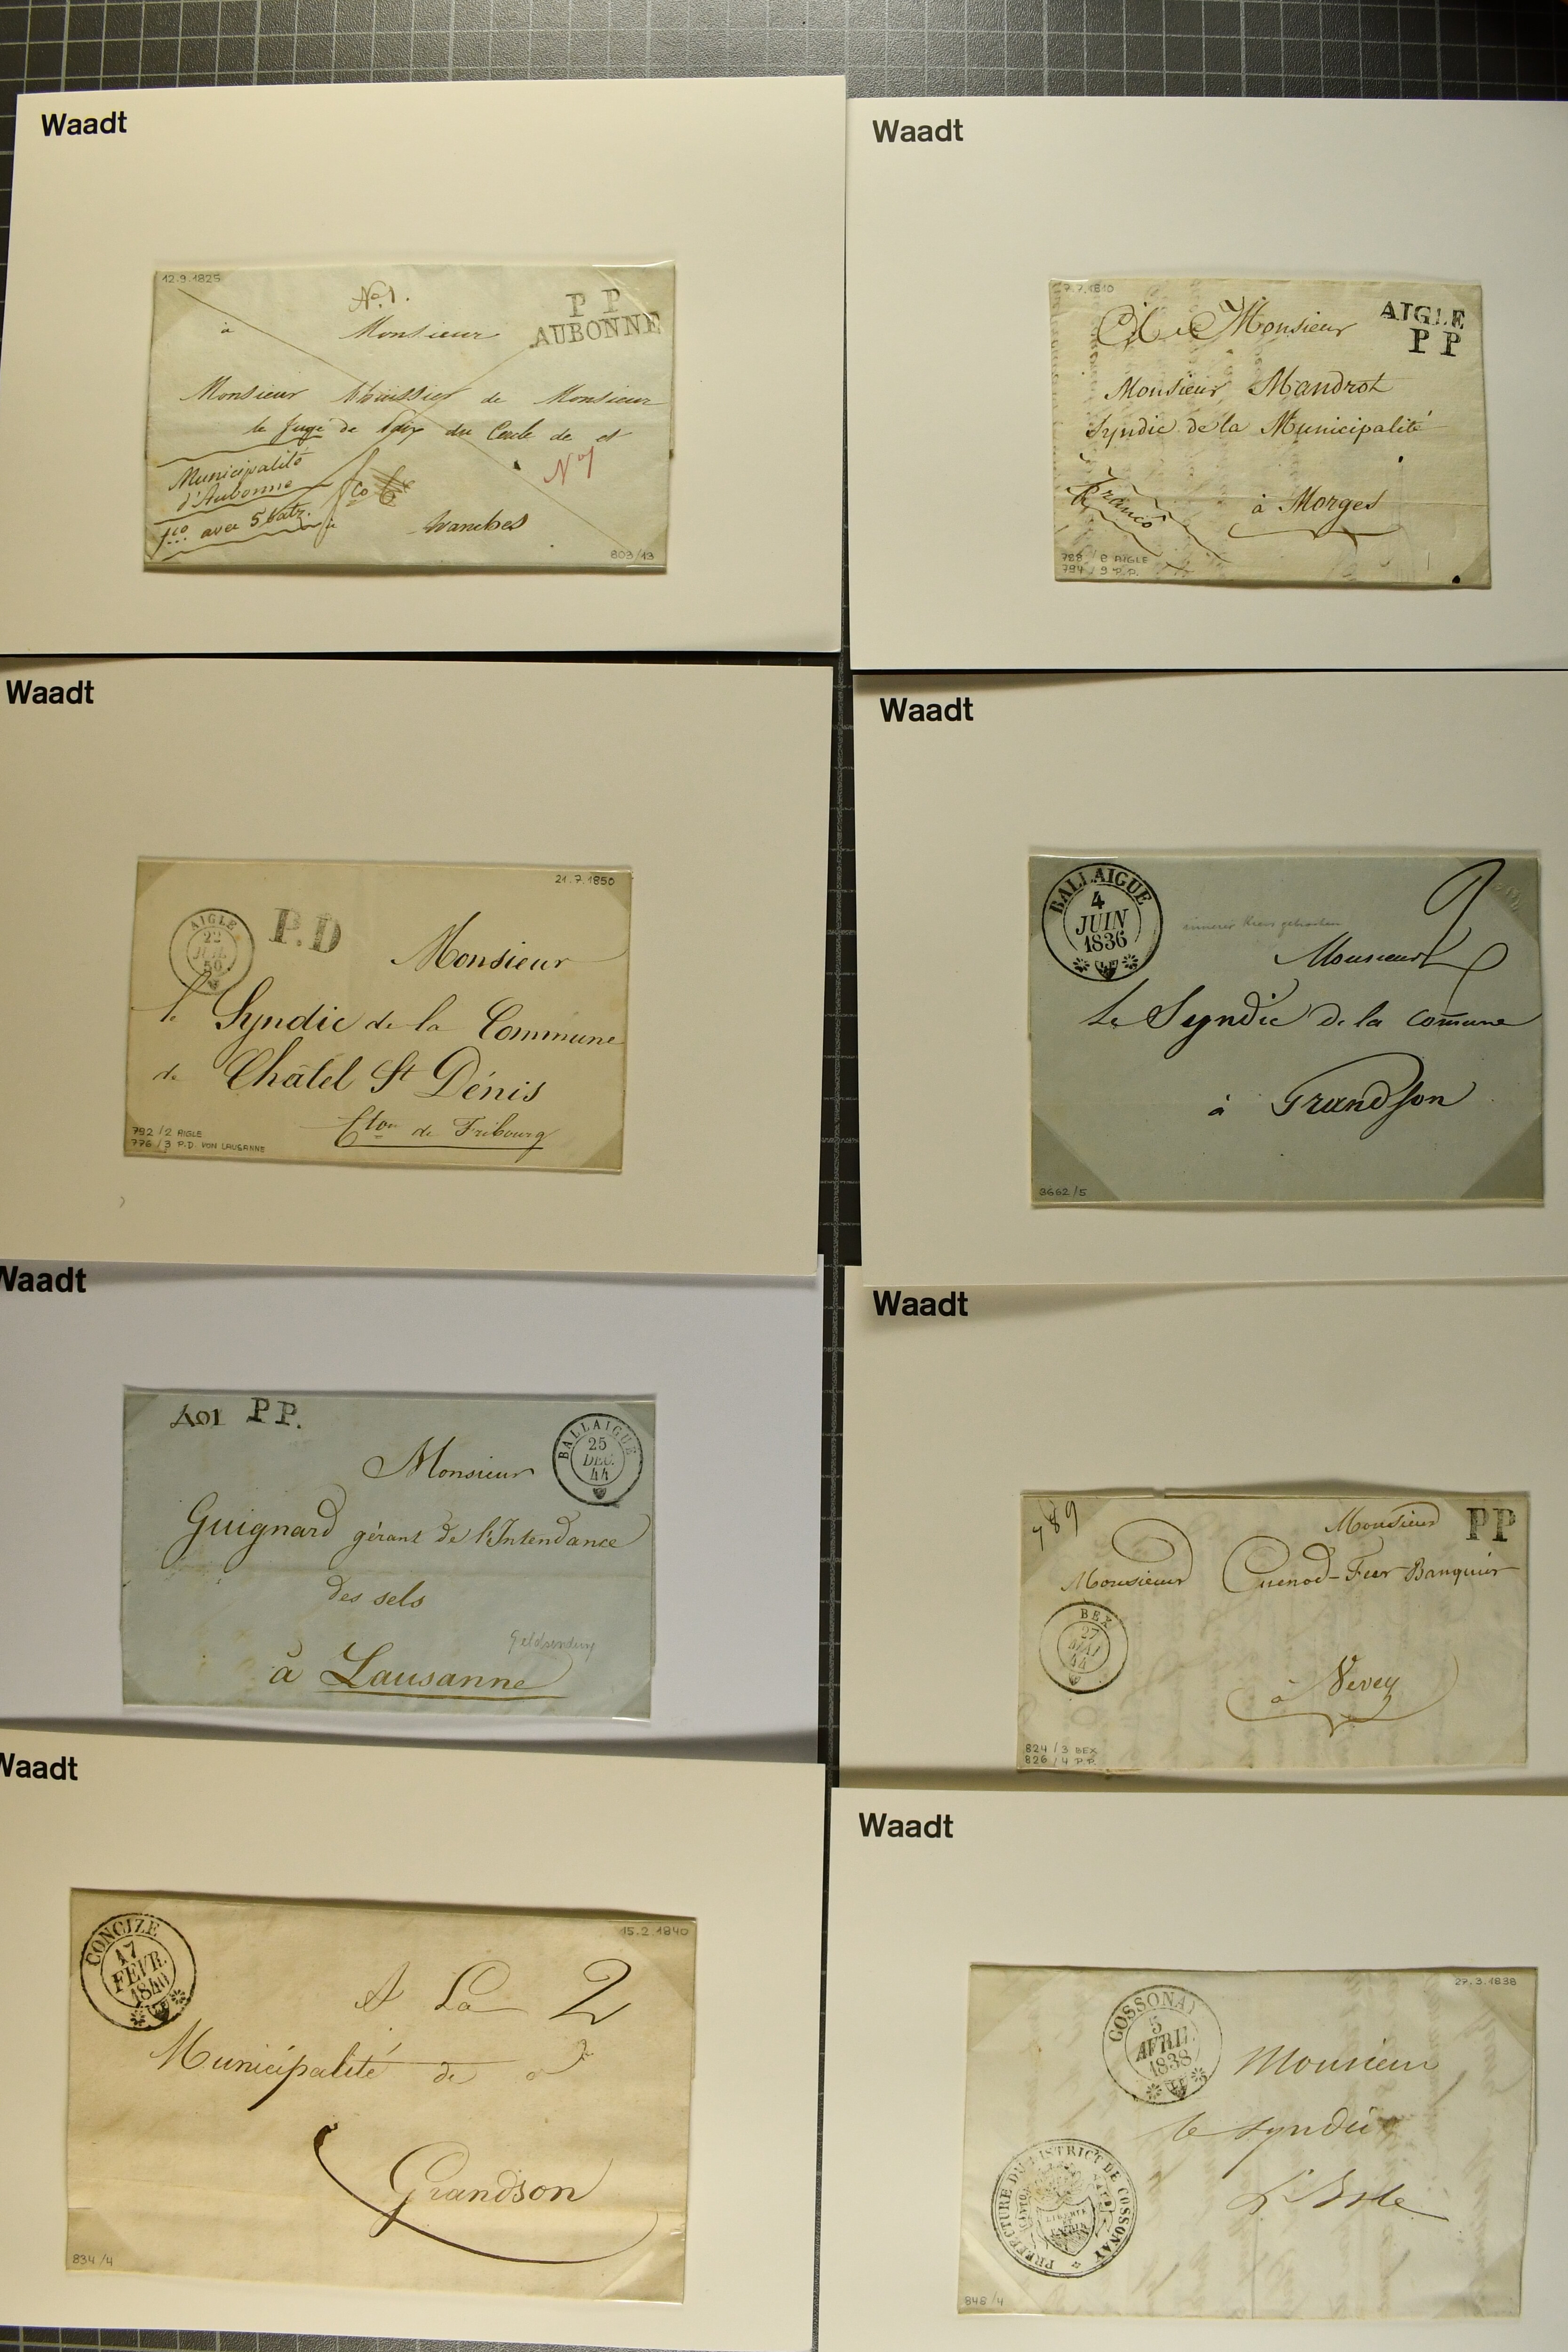 Waadt
12.9.1825
No. 1.
P P
AUBONNE
à Monsieur
Monsieur de Monsieur
le Juge de du Cercle de et
No 1
Municipalité
d'Aubonne
fco
fco avec 5 Batz.
803/13
Waadt
7.7.1810
AIGLE
P P
Monsieur
Monsieur Mandrot
Syndic de la Municipalité
Franco
à Morges
788 / 8 AIGLE
794 / 9 P.P.
Waadt
21.7.1850
AIGLE
22
JUIL
50
P.D
Monsieur
le Syndic de la Commune
de Châtel St Dénis
Cton de Fribourg
792/2 AIGLE
776/3 P.D. VON LAUSANNE
Waadt
BALLAIGUE
4
JUIN
1836
innerer Kreis gebrochen
Monsieur
Le Syndic de la comune
à Grandson
3662/5
Waadt
401 P P.
BALLAIGUE
25
DEC.
44
Monsieur
Guignard gérant de l'Intendance
des sels
Geldsendung
à Lausanne
Waadt
789
Monsieur
PP
Monsieur Cuenod-Fier Banquier
BEX
27
MAI
44
à Vevey
824/3 BEX
826/4 P.P.
Waadt
15.2.1840
CONCIZE
17
FEVR.
1840
A La 2
Municipalité de
Grandson
834/4
Waadt
27.3.1838
COSSONAY
5
AVRIL
1838
Monsieur
le syndic
L'Isle
PREFECTURE DU DISTRICT DE COSSONAY
CANTON DE VAUD
LIBERTE
ET
PATRIE
848/4